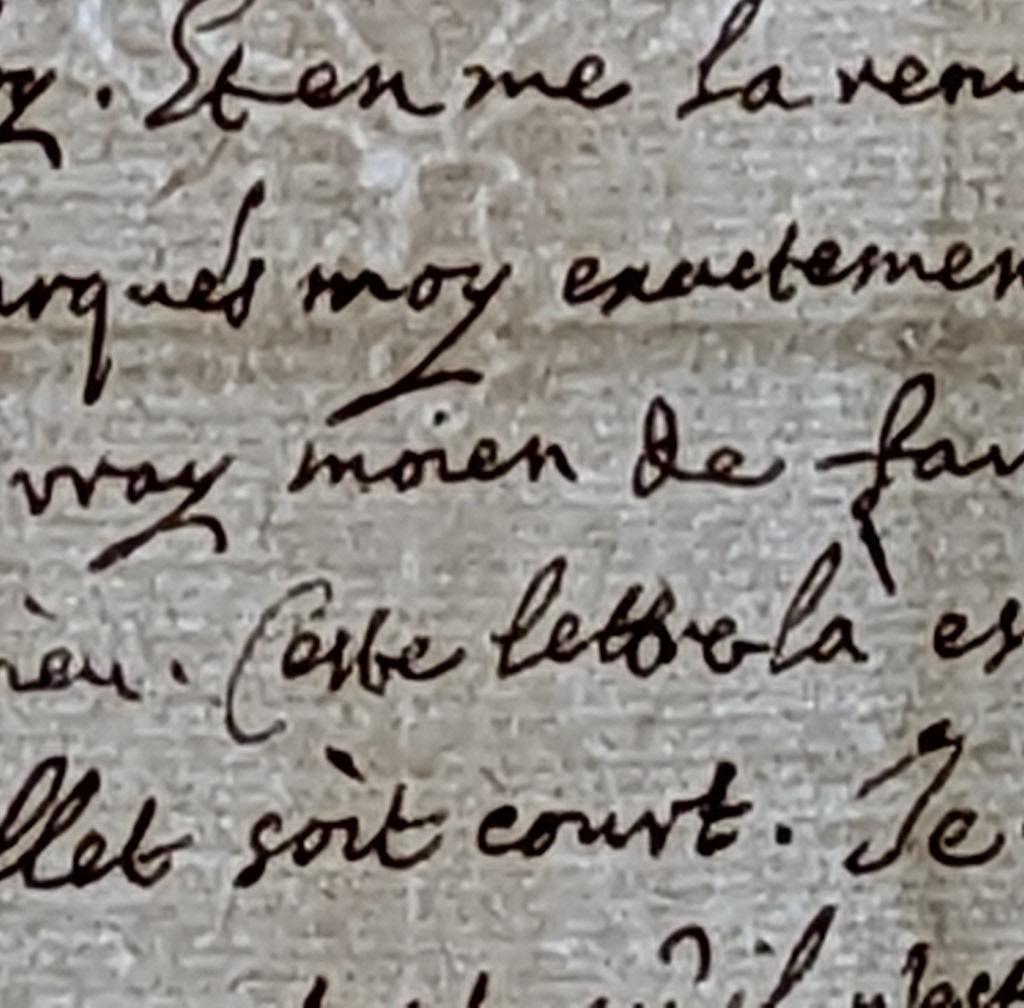 . Et en me la renv
arqués moy exactemen
vray moien de fai
ieu. Ceste lettre la es
llet soit court. Je
qu'il